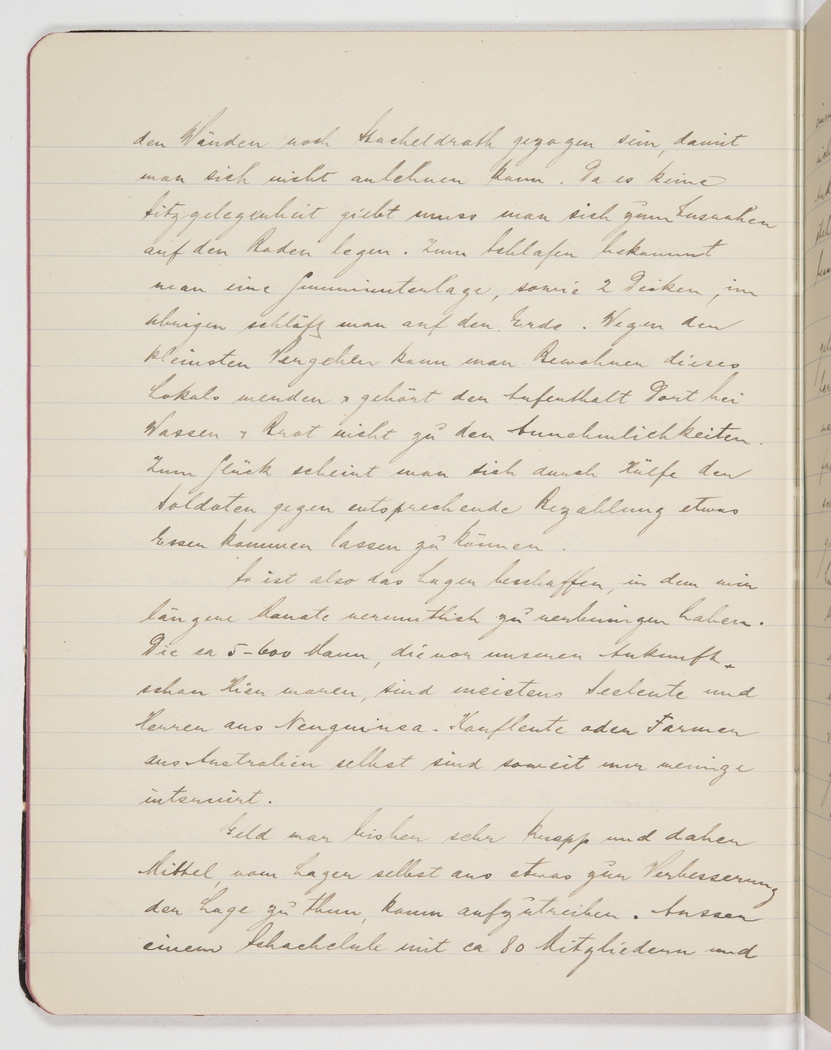 den Wänden noch Stacheldrath gezogen sein, damit
man sich nicht anlehnen kann. Da es keine
Sitzgelegenheit giebt muss man sich zum Ausruhen
auf den Boden legen. Zum Schlafen bekommt
man eine Gummiunterlage, sowie 2 Decken, im
übrigen schläft man auf der Erde. Wegen der
kleinsten Vergehen kann man Bewohner dieses
Lokals werden & gehört der Aufenthalt Dort bei
Wasser & Brot nicht zu den Annehmlichkeiten.
Zum Glück scheint man sich durch Hülfe der
Soldaten gegen entsprechende Bezahlung etwas
Essen kommen lassen zu können.
So ist also das Lager beschaffen, in dem wir
längere Monate vermuthlich zu verbringen haben.
Die ca 5-600 Mann, die vor unserer Ankunft
schon Hier waren, sind meistens Seeleute und
Herren aus Neuguinea. Kaufleute oder Farmer
aus Australien selbst sind soweit nur wenige
internirt.
Geld war bisher sehr knapp und daher
Mittel, vom Lager selbst aus etwas zur Verbesserung
der Lage zu thun, kaum aufzutreiben. Ausser
einem Schachclub mit ca 80 Mitgliedern und